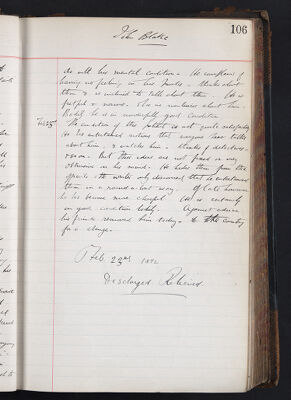 106
John Blake
do with his mental condition. He complains of
having no feeling in his hands - thinks about
them & is inclined to talk about them. He is
fretful & nervous.
Bodily he is in wonderful good condition
Feb 23rd The condition of this patient is not quite satisfactory
He has entertained notions that anyone here talks
about him, & watches him - thinks of detectives
& so on. But these ideas are not fixed or very
obtrusive in his mind. He hides them from the
officials & the world only discovered that he entertained
them in a roundabout way. Of late however
he has become more cheerful. He is certainly
in good condition bodily. Against advice
his friends removed him today to the country
for a change.
Feb 23rd 1892
Discharged Relieved